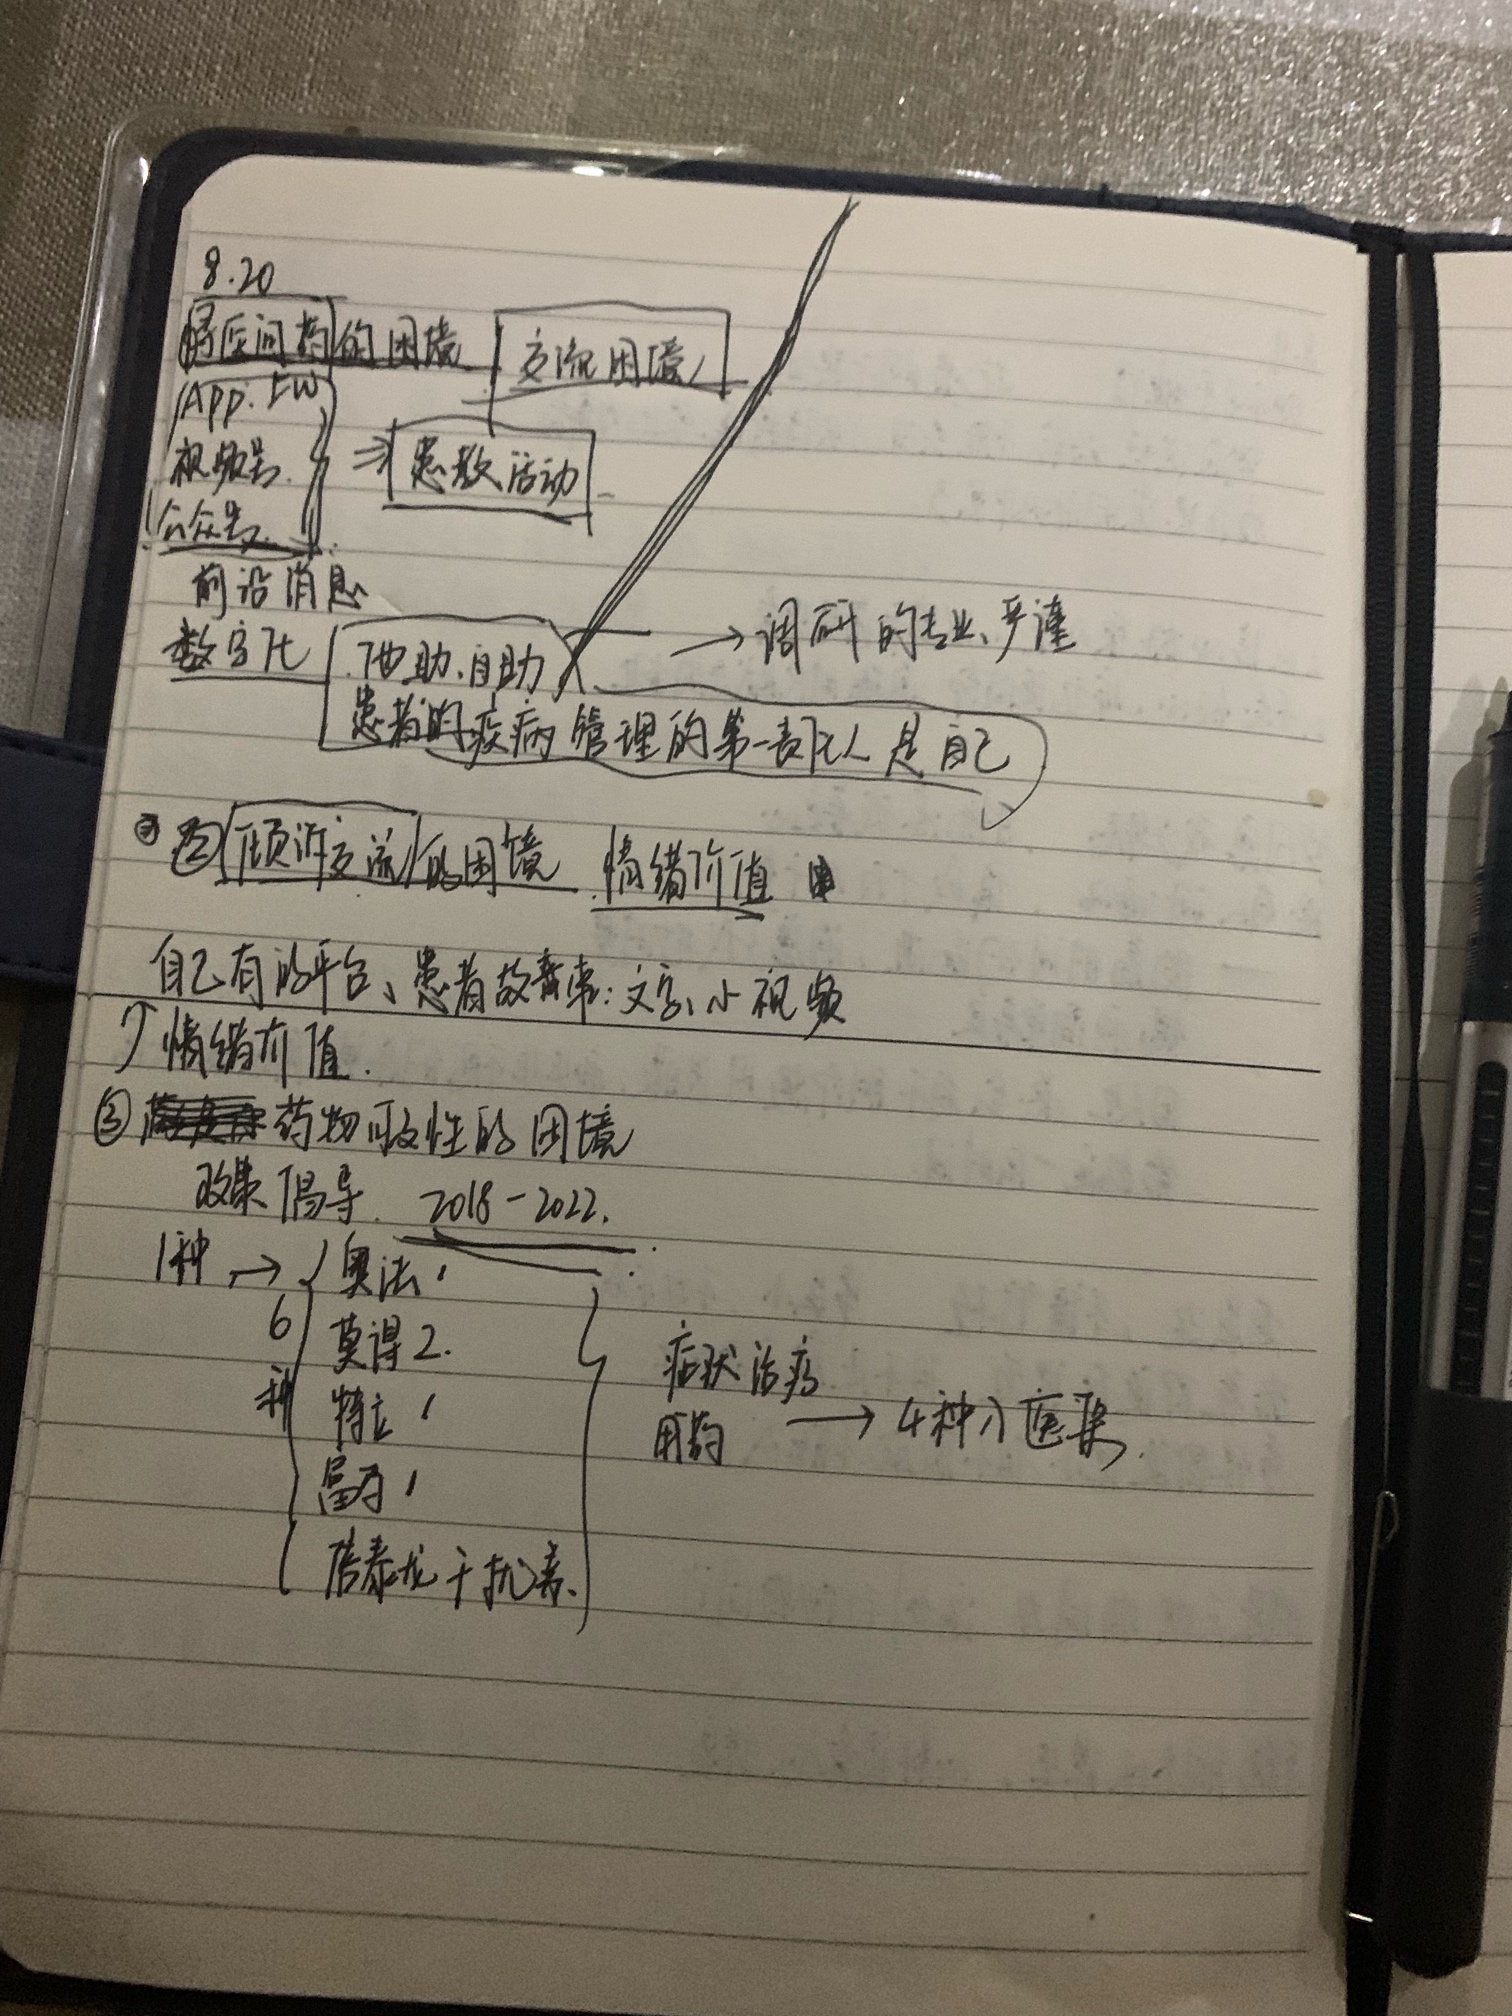 8.20
寻医问药的困境 交流困境
App. EW
视频号. ⇒ 患教活动
公众号.
前沿消息
数字化 他助.自助 → 调研的专业、严谨
患者的疾病管理的第一责任人是自己
② 倾诉交流的困境 情绪价值
自己有的平台、患者故事:文字、小视频
↑情绪价值.
③ 药物可及性的困境
政策倡导. 2018-2022.
1种 → 奥法1
6 莫得2.
种 特立1 症状治疗
富马1 用药 → 4种入医保.
倍泰龙干扰素.